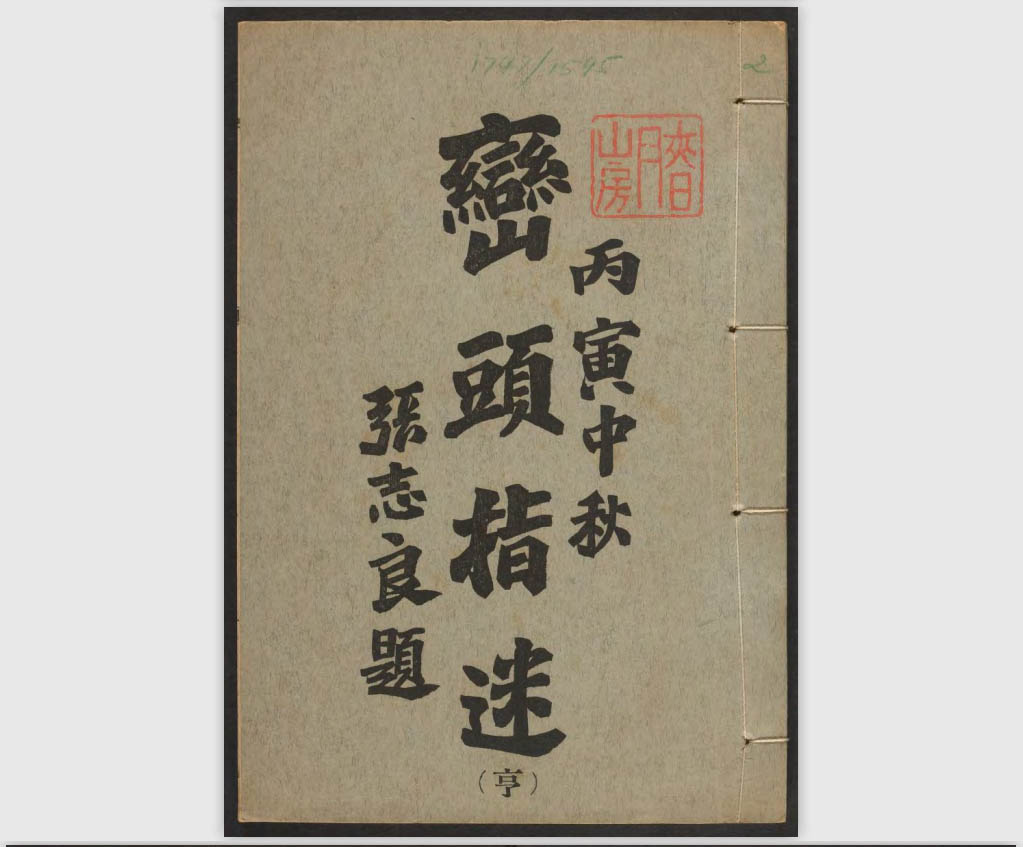 1747/1595
2
春月山房
丙寅中秋
巒頭指迷
(亨)
張志良題